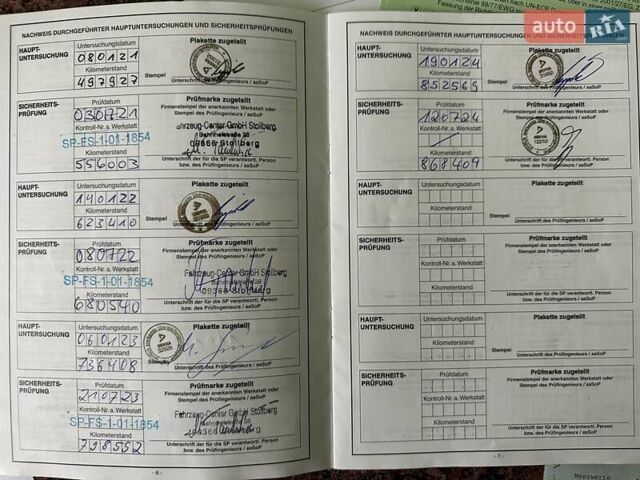 NACHWEIS DURCHGEFÜHRTER HAUPTUNTERSUCHUNGEN UND SICHERHEITSPRÜFUNGEN
HAUPT-
UNTERSUCHUNG
Untersuchungsdatum
080121
Kilometerstand
497927
Plakette zugeteilt
Stempel
Unterschrift des Prüfingenieurs / aaSoP
SICHERHEITS-
PRÜFUNG
Prüfdatum
030721
Kontroll-Nr. a. Werkstatt
SP-FS-1-01-1854
Kilometerstand
556003
Prüfmarke zugeteilt
Firmenstempel der anerkannten Werkstatt oder
Stempel des Prüfingenieurs / aaSoP
Fahrzeug-Center GmbH Stollberg
Bahnhofstraße 28
09366 Stollberg
Unterschrift der für die SP verantwortl. Person
bzw. des Prüfingenieurs / aaSoP
HAUPT-
UNTERSUCHUNG
Untersuchungsdatum
140122
Kilometerstand
623410
Plakette zugeteilt
Stempel
Unterschrift des Prüfingenieurs / aaSoP
SICHERHEITS-
PRÜFUNG
Prüfdatum
080722
Kontroll-Nr. a. Werkstatt
SP-FS-1-01-1854
Kilometerstand
680540
Prüfmarke zugeteilt
Firmenstempel der anerkannten Werkstatt oder
Stempel des Prüfingenieurs / aaSoP
Fahrzeug-Center GmbH Stollberg
Bahnhofstraße 28
09366 Stollberg
Unterschrift der für die SP verantwortl. Person
bzw. des Prüfingenieurs / aaSoP
HAUPT-
UNTERSUCHUNG
Untersuchungsdatum
060123
Kilometerstand
736408
Plakette zugeteilt
Stempel
Unterschrift des Prüfingenieurs / aaSoP
SICHERHEITS-
PRÜFUNG
Prüfdatum
210723
Kontroll-Nr. a. Werkstatt
SP-FS-1-01-1854
Kilometerstand
798552
Prüfmarke zugeteilt
Firmenstempel der anerkannten Werkstatt oder
Stempel des Prüfingenieurs / aaSoP
Fahrzeug-Center GmbH Stollberg
Bahnhofstraße 28
09366 Stollberg
Unterschrift der für die SP verantwortl. Person
bzw. des Prüfingenieurs / aaSoP
- 6 -
auto RIA
NACHWEIS DURCHGEFÜHRTER HAUPTUNTERSUCHUNGEN UND SICHERHEITSPRÜFUNGEN
HAUPT-
UNTERSUCHUNG
Untersuchungsdatum
190124
Kilometerstand
852569
Plakette zugeteilt
Stempel
Unterschrift des Prüfingenieurs / aaSoP
SICHERHEITS-
PRÜFUNG
Prüfdatum
120724
Kontroll-Nr. a. Werkstatt
Kilometerstand
868409
Prüfmarke zugeteilt
Firmenstempel der anerkannten Werkstatt oder
Stempel des Prüfingenieurs / aaSoP
Unterschrift der für die SP verantwortl. Person
bzw. des Prüfingenieurs / aaSoP
HAUPT-
UNTERSUCHUNG
Untersuchungsdatum
Kilometerstand
Plakette zugeteilt
Stempel
Unterschrift des Prüfingenieurs / aaSoP
SICHERHEITS-
PRÜFUNG
Prüfdatum
Kontroll-Nr. a. Werkstatt
Kilometerstand
Prüfmarke zugeteilt
Firmenstempel der anerkannten Werkstatt oder
Stempel des Prüfingenieurs / aaSoP
Unterschrift der für die SP verantwortl. Person
bzw. des Prüfingenieurs / aaSoP
HAUPT-
UNTERSUCHUNG
Untersuchungsdatum
Kilometerstand
Plakette zugeteilt
Stempel
Unterschrift des Prüfingenieurs / aaSoP
SICHERHEITS-
PRÜFUNG
Prüfdatum
Kontroll-Nr. a. Werkstatt
Kilometerstand
Prüfmarke zugeteilt
Firmenstempel der anerkannten Werkstatt oder
Stempel des Prüfingenieurs / aaSoP
Unterschrift der für die SP verantwortl. Person
bzw. des Prüfingenieurs / aaSoP
- 7 -
Messwerte